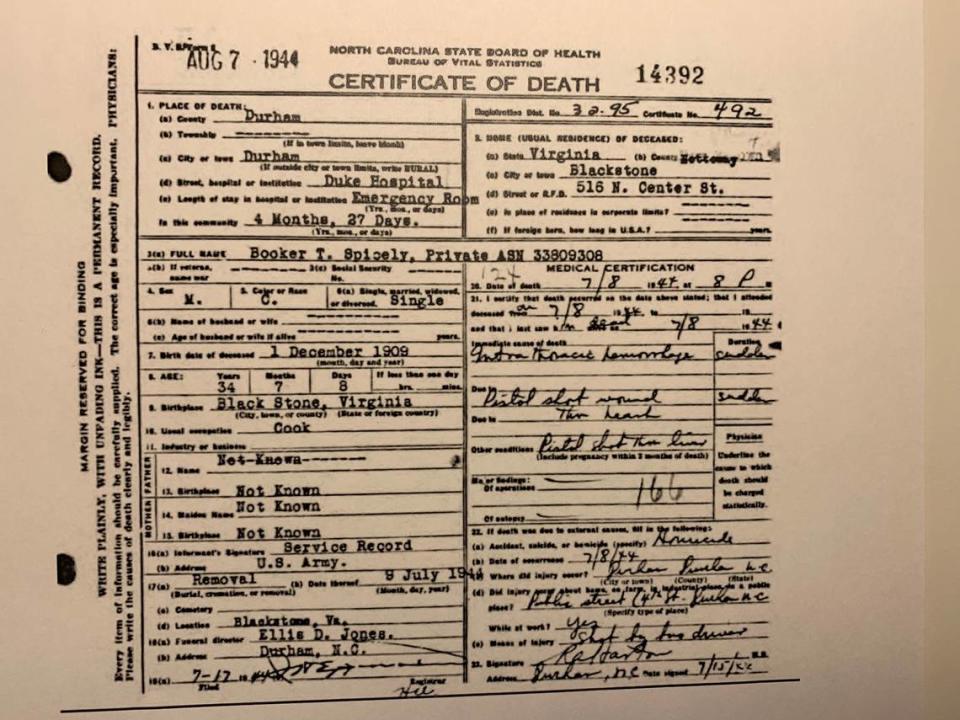 AUG 7 · 1944
NORTH CAROLINA STATE BOARD OF HEALTH
BUREAU OF VITAL STATISTICS
CERTIFICATE OF DEATH
14392
MARGIN RESERVED FOR BINDING
WRITE PLAINLY, WITH UNFADING INK—THIS IS A PERMANENT RECORD.
Every item of information should be carefully supplied. The correct age is especially important. PHYSICIANS:
Please write the causes of death clearly and legibly.
1. PLACE OF DEATH:
(a) County Durham
(b) Township
(If in town limits, leave blank)
(c) City or town Durham
(If outside city or town limits, write RURAL)
(d) Street, hospital or institution Duke Hospital
(e) Length of stay in hospital or institution Emergency Room
(Yrs., mos., or days)
In this community 4 Months, 27 Days.
(Yrs., mos., or days)
Registration Dist. No. 32-95 Certificate No. 492
2. HOME (USUAL RESIDENCE) OF DECEASED:
(a) State Virginia (b) County Nottoway
(c) City or town Blackstone
(d) Street or R.F.D. 516 N. Center St.
(e) Is place of residence in corporate limits?
(f) If foreign born, how long in U.S.A.? years.
3(a) FULL NAME Booker T. Spicely, Private ASN 33809308
3(b) If veteran, name war
3(c) Social Security No.
4. Sex M.
5. Color or Race C.
6(a) Single, married, widowed, or divorced. Single
6(b) Name of husband or wife
(c) Age of husband or wife if alive years.
7. Birth date of deceased 1 December 1909
(month, day and year)
8. AGE: Years 34 Months 7 Days 8 If less than one day hrs. mins.
9. Birthplace Black Stone, Virginia
(City, town, or county) (State or foreign country)
10. Usual occupation Cook
11. Industry or business
FATHER
12. Name Not-Known
13. Birthplace Not Known
MOTHER
14. Maiden Name Not Known
15. Birthplace Not Known
16(a) Informant's Signature Service Record
(b) Address U.S. Army.
17(a) Removal (b) Date thereof 9 July 1944
(Burial, cremation, or removal) (Month, day, year)
(c) Cemetery
(d) Location Blackstone, Va.
18(a) Funeral director Ellis D. Jones.
(b) Address Durham, N.C.
19(a) 7-17 1944
Filed Registrar
MEDICAL CERTIFICATION
124
20. Date of death 7/8 1944 at 8 P
21. I certify that death occurred on the date above stated; that I attended
deceased from on 7/8 1944 to 19
and that I last saw him dead 7/8 1944
Immediate cause of death Duration
Intra thoracic hemorrhage sudden
Due to Pistol shot wound sudden
Due to Thru heart
Other conditions Pistol shot thru liver
(Include pregnancy within 3 months of death)
Physician
Underline the cause to which death should be charged statistically.
Major findings:
Of operations
166
Of autopsy
22. If death was due to external causes, fill in the following:
(a) Accident, suicide, or homicide (specify) Homicide
(b) Date of occurrence 7/8/44
(c) Where did injury occur? Durham Durham N.C.
(City or town) (County) (State)
(d) Did injury occur about home, on farm, in industrial place, in a public
place? Public street (4th St. Durham NC
(Specify type of place)
While at work? Yes
(e) Means of injury Shot by bus driver
23. Signature M.D.
Address Durham, N.C. Date signed 7/15/44